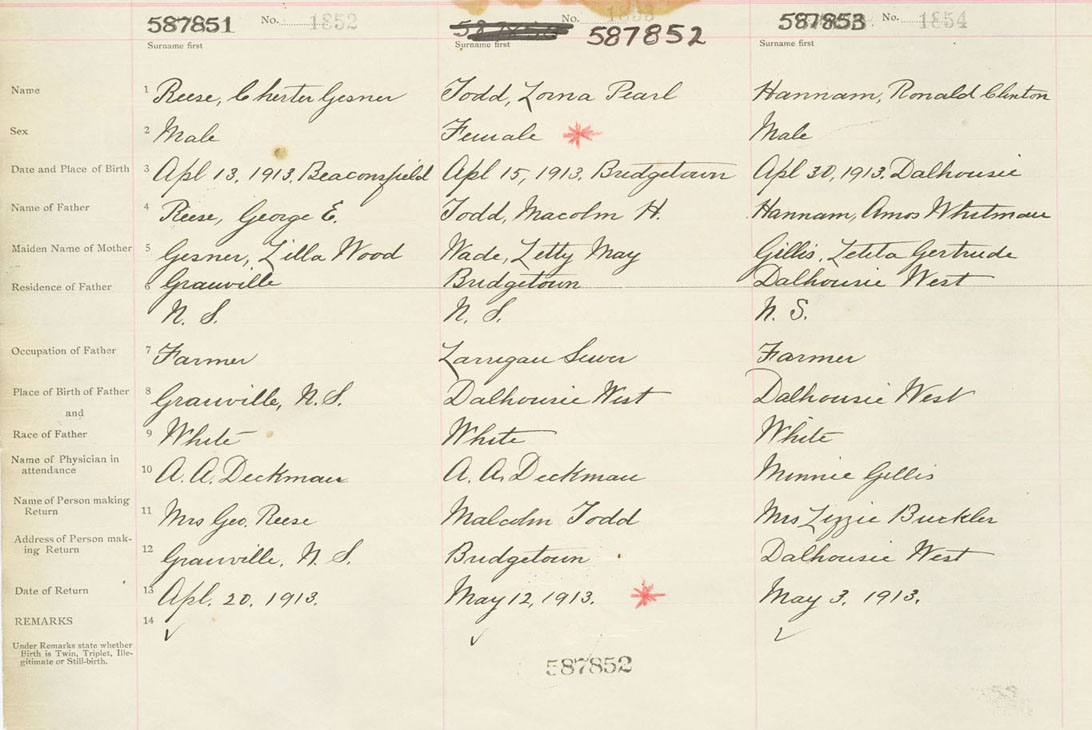 587851 No. 1852 No. 1853 587853 No. 1854
587852
Surname first Surname first Surname first
Name 1 Reese, Chester Gesner Todd, Lorna Pearl Hannam, Ronald Clinton
Sex 2 Male Female Male
Date and Place of Birth 3 Apl 13, 1913, Beaconsfield Apl 15, 1913. Bridgetown Apl 30, 1913, Dalhousie
Name of Father 4 Reese, George E. Todd, Macolm H. Hannam, Amos Whitman
Maiden Name of Mother 5 Gesner, Zilla Wood Wade, Letty May Gillis, Letita Gertrude
Residence of Father 6 Granville Bridgetown Dalhousie West
N. S. N. S. N. S.
Occupation of Father 7 Farmer Larrigan Sewer Farmer
Place of Birth of Father 8 Granville, N. S. Dalhousie West Dalhousie West
and
Race of Father 9 White White White
Name of Physician in
attendance 10 A. A. Deckman A. A. Deckman Minnie Gillis
Name of Person making
Return 11 Mrs Geo. Reese Malcolm Todd Mrs Lizzie Buckler
Address of Person mak-
ing Return 12 Granville, N. S. Bridgetown Dalhousie West
Date of Return 13 Apl. 20, 1913. May 12, 1913. May 3, 1913.
REMARKS 14
Under Remarks state whether
Birth is Twin, Triplet, Ille-
gitimate or Still-birth.
587852